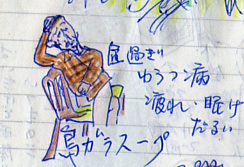 食過ぎ
ゆううつ病
疲れ・眠け
だるい
鳥ガラスープ